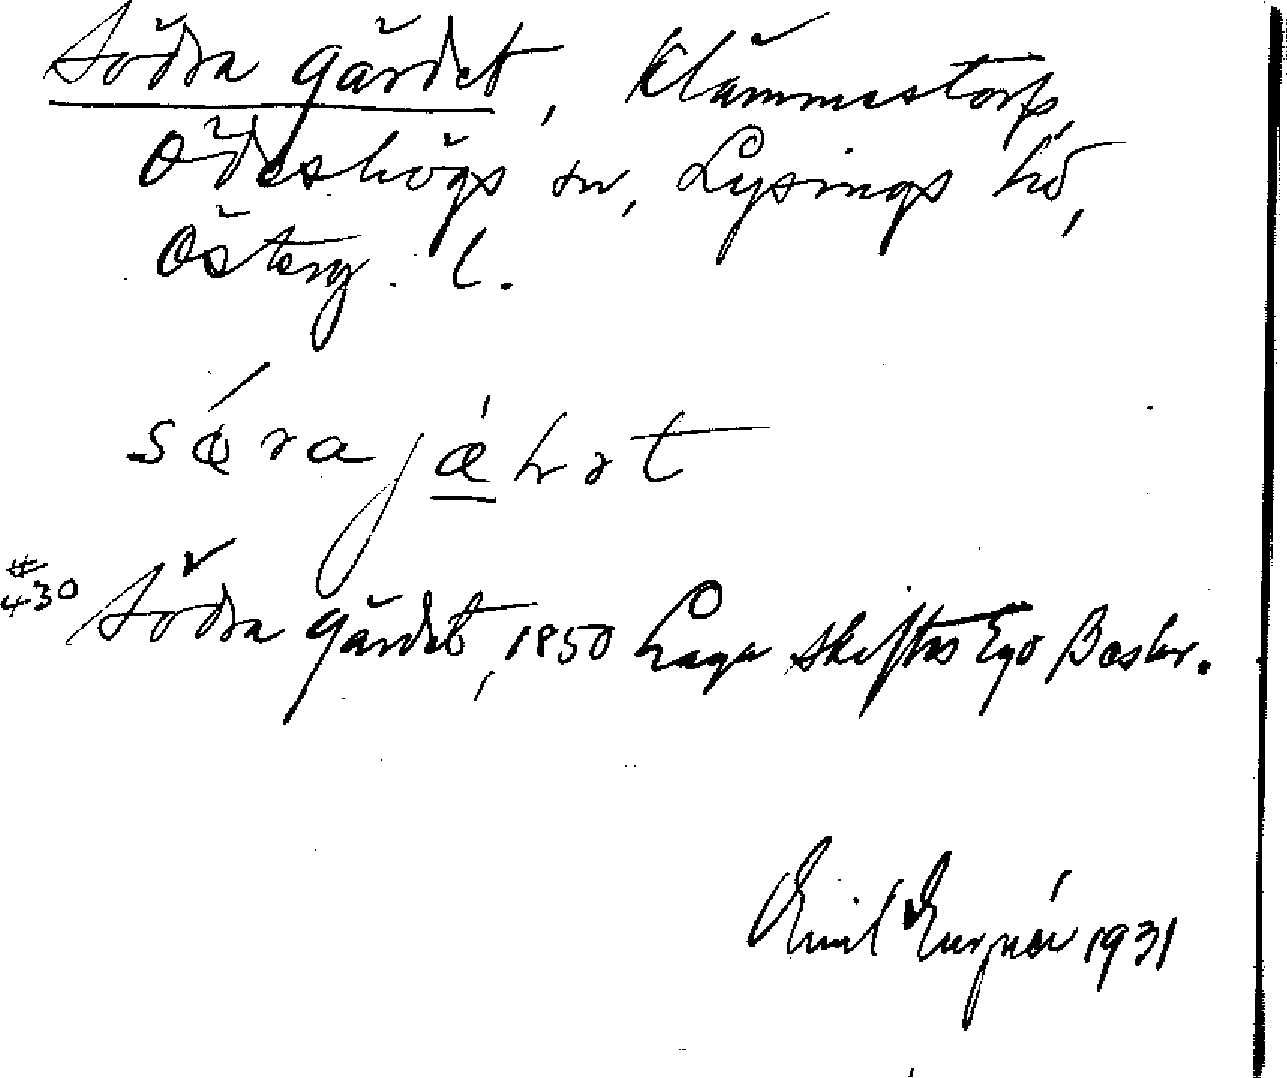 Södra gärdet, Klämmestorp,
Ödeshögs sn, Lysings hd,
Österg. l.
særajæ̲hrt
#
430 Södra gärdet, 1850 Laga Skiftes Ego Beskr.
Emil 1931